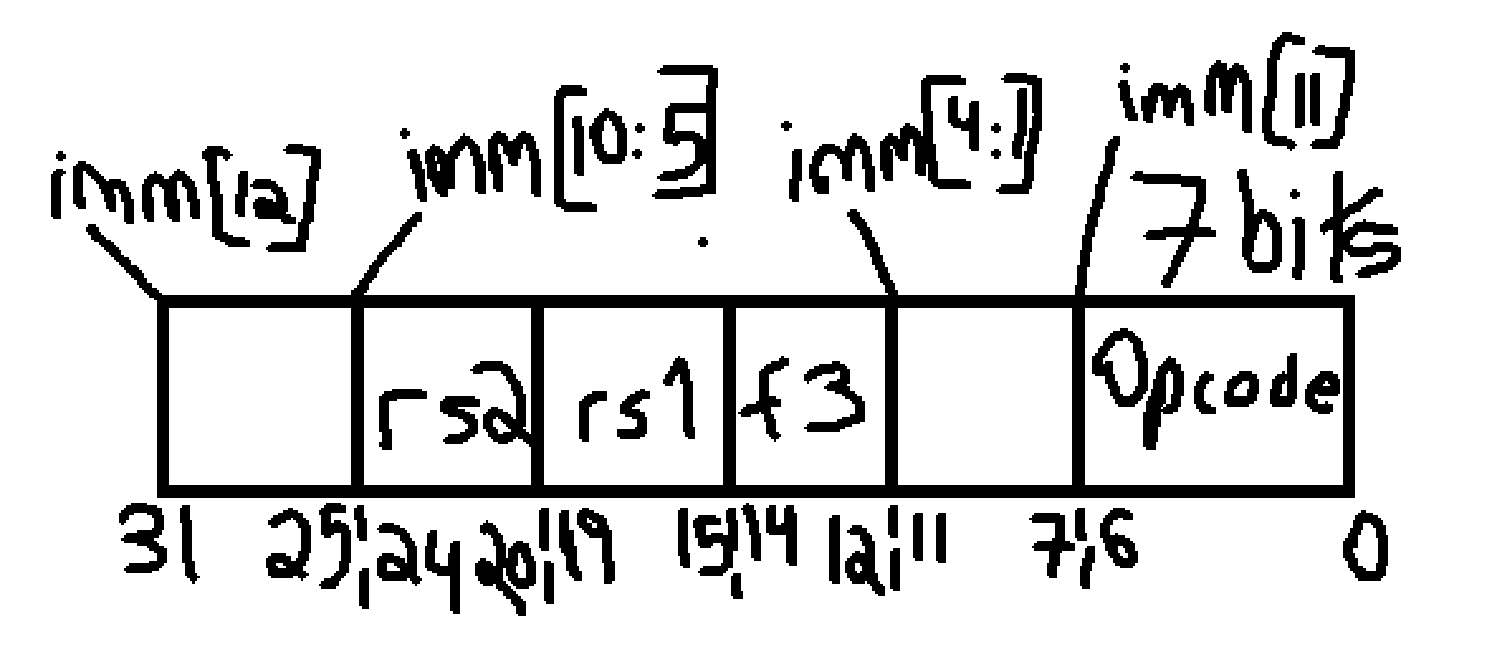 imm[12] imm[10:5] imm[4:1] imm[11]
7 bits
rs2 rs1 f3 Opcode
31 25 24 20 19 15 14 12 11 7 6 0